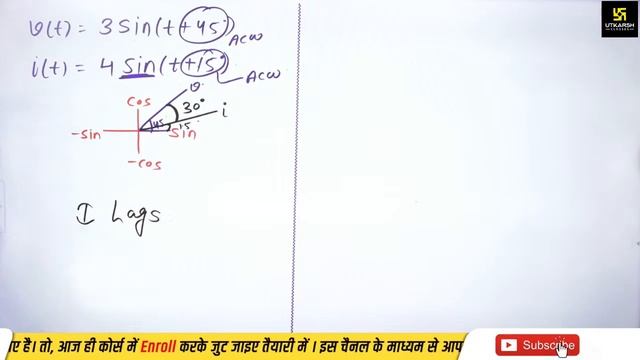 v(t) = 3 Sin(t+45°) ACW
i(t) = 4 Sin(t+15°) ACW
cos
v
30°
i
45
15
-sin
Sin
-cos
I Lags
UTKARSH
CLASSES
ए है। तो, आज ही कोर्स में Enroll करके जुट जाइए तैयारी में । इस चैनल के माध्यम से आप
Subscribe